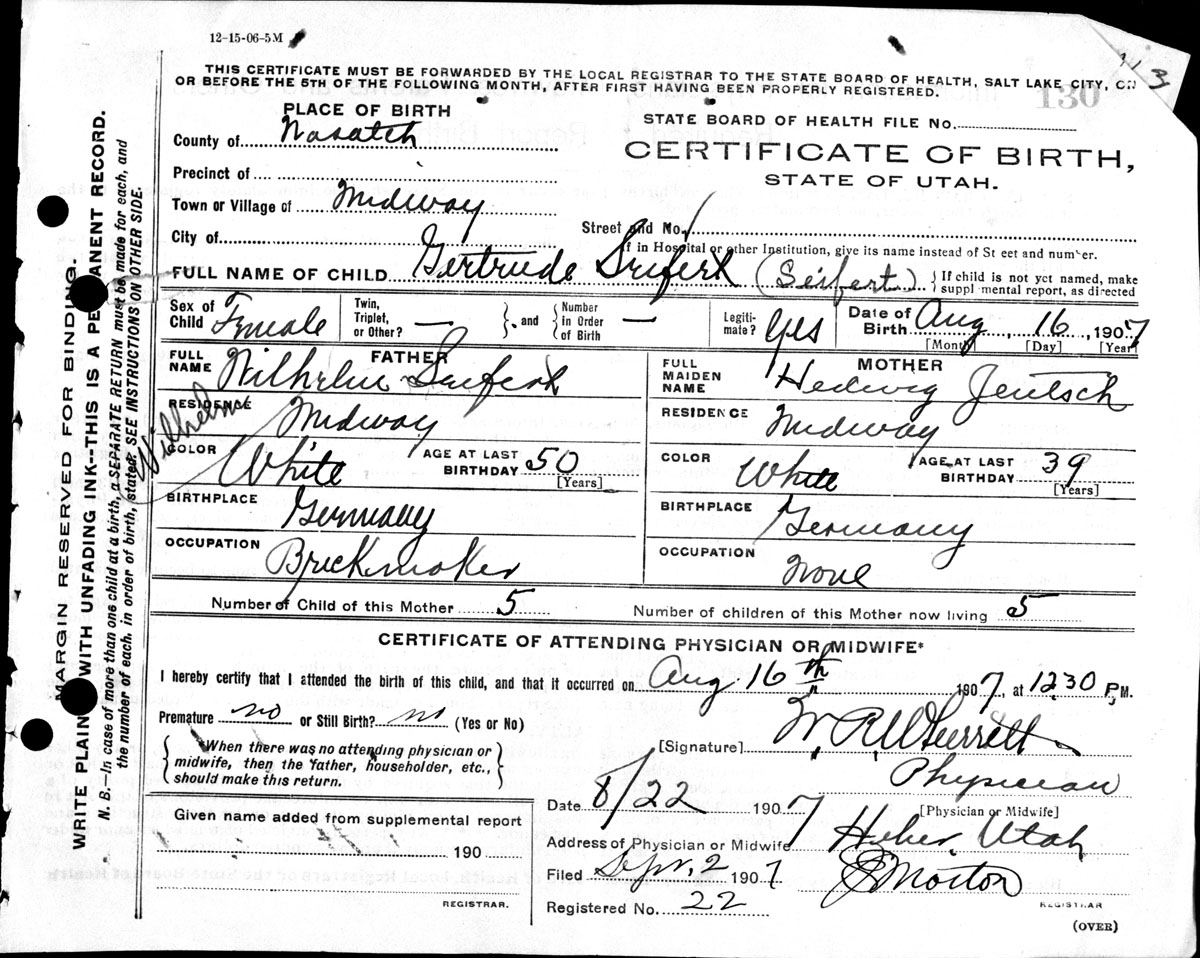 12-15-06-5M
113
THIS CERTIFICATE MUST BE FORWARDED BY THE LOCAL REGISTRAR TO THE STATE BOARD OF HEALTH, SALT LAKE CITY, ON
OR BEFORE THE 5TH OF THE FOLLOWING MONTH, AFTER FIRST HAVING BEEN PROPERLY REGISTERED.
130
PLACE OF BIRTH
STATE BOARD OF HEALTH FILE No.
County of Wasatch
CERTIFICATE OF BIRTH,
STATE OF UTAH.
Precinct of
Town or Village of Midway
Street and No.
City of
If in Hospital or other Institution, give its name instead of St eet and number.
FULL NAME OF CHILD Gertrude Seifert (Seifert) } If child is not yet named, make suppl mental report, as directed
Sex of Child Female
Twin, Triplet, or Other? — } and { Number in Order of Birth —
Legiti-mate? Yes
Date of Birth Aug 16, 1907
[Month] [Day] [Year]
FATHER
FULL NAME Wilhelm Seifert
Wilhelm
RESIDENCE Midway
COLOR White
AGE AT LAST BIRTHDAY 50 [Years]
BIRTHPLACE Germany
OCCUPATION Brickmaker
MOTHER
FULL MAIDEN NAME Hedwig Jentsch
RESIDENCE Midway
COLOR White
AGE AT LAST BIRTHDAY 39 [Years]
BIRTHPLACE Germany
OCCUPATION None
Number of Child of this Mother 5
Number of children of this Mother now living 5
CERTIFICATE OF ATTENDING PHYSICIAN OR MIDWIFE*
I hereby certify that I attended the birth of this child, and that it occurred on Aug. 16th 1907, at 1230 P.M.
Premature no or Still Birth? no (Yes or No)
{ When there was no attending physician or midwife, then the father, householder, etc., should make this return. }
[Signature] W. R.
Physician
[Physician or Midwife]
Date 8/22 1907
Address of Physician or Midwife Heber, Utah
Given name added from supplemental report
190
REGISTRAR.
Filed Sept. 2 1907 Morton
REGISTRAR
Registered No. 22
(OVER)
MARGIN RESERVED FOR BINDING.
WRITE PLAIN WITH UNFADING INK--THIS IS A PERMANENT RECORD.
N. B.—In case of more than one child at a birth, a SEPARATE RETURN must be made for each, and
the number of each, in order of birth, stated. SEE INSTRUCTIONS ON OTHER SIDE.